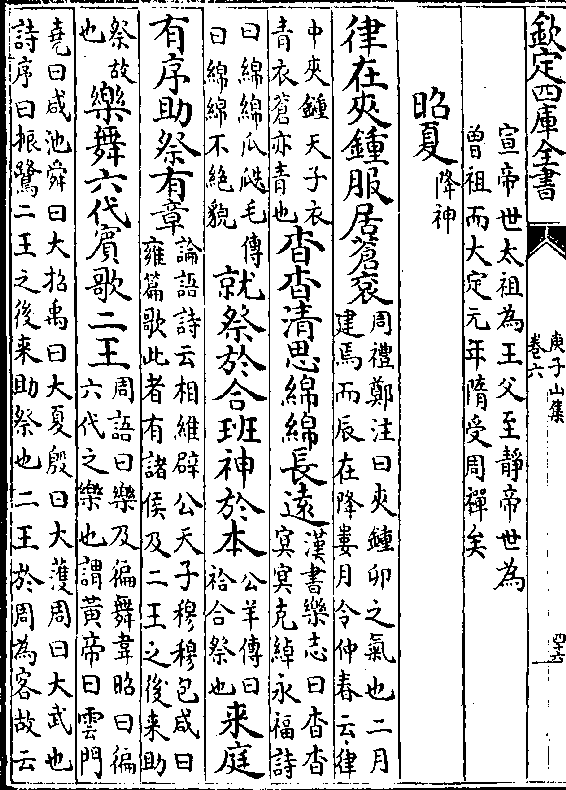 欽定四庫全書
庚子山集
卷六
四十六
宣帝世太祖為王父至靜帝世為
曽祖而大定元年隋受周禪矣
昭夏
降神
律在夾鍾服居蒼衮
周禮鄭注曰夾鍾卯之氣也二月
建焉而辰在降婁月令仲春云律
中夾鍾天子衣
青衣蒼亦青也
杳杳清思綿綿長遠
漢書樂志曰杳杳
冥冥克綽永福詩
曰綿綿瓜瓞毛傳
曰綿綿不絶貌
就祭於合班神於本
公羊傳曰
祫合祭也
来庭
有序助祭有章
論語詩云相維辟公天子穆穆包咸曰
雍篇歌此者有諸侯及二王之後来助
祭故
也
樂舞六代賓歌二王
周語曰樂及徧舞韋昭曰徧
六代之樂也謂黃帝曰雲門
堯曰咸池舜曰大招禹曰大夏殷曰大濩周曰大武也
詩序曰振鷺二王之後来助祭也二王於周為客故云